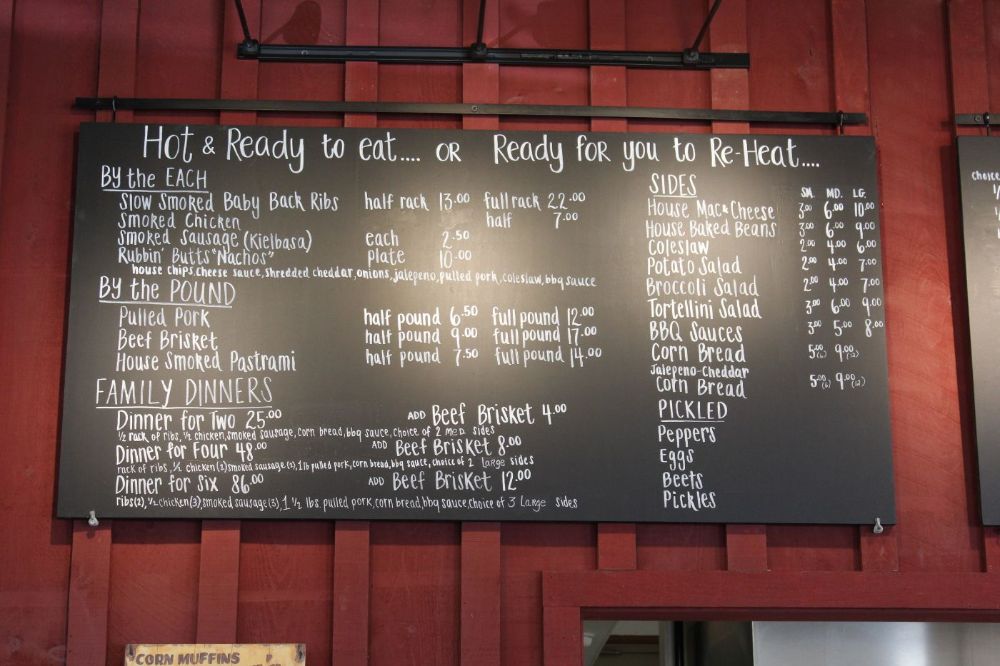 Hot & Ready to eat.... or Ready for you to Re-Heat....
By the EACH
Slow Smoked Baby Back Ribs half rack 13.00 full rack 22.00
Smoked Chicken half 7.00
Smoked Sausage (Kielbasa) each 2.50
Rubbin' Butts "Nachos" plate 10.00
house chips, cheese sauce, shredded cheddar, onions, jalepeno, pulled pork, coleslaw, bbq sauce
By the POUND
Pulled Pork half pound 6.50 full pound 12.00
Beef Brisket half pound 9.00 full pound 17.00
House Smoked Pastrami half pound 7.50 full pound 14.00
FAMILY DINNERS
Dinner for Two 25.00 ADD Beef Brisket 4.00
1/2 rack of ribs, 1/2 chicken, smoked sausage, corn bread, bbq sauce, choice of 2 med sides
Dinner for Four 48.00 ADD Beef Brisket 8.00
rack of ribs, 1/2 chicken (2) smoked sausage (2), 1lb pulled pork, corn bread, bbq sauce, choice of 2 large sides
Dinner for Six 86.00 ADD Beef Brisket 12.00
ribs(2), 1/2 chicken (3), smoked sausage (3), 1 1/2 lbs pulled pork, corn bread, bbq sauce, choice of 3 large sides
SIDES SM. MD. LG.
House Mac & Cheese 3.00 6.00 10.00
House Baked Beans 3.00 6.00 9.00
Coleslaw 2.00 4.00 6.00
Potato Salad 2.00 4.00 7.00
Broccoli Salad 2.00 4.00 7.00
Tortellini Salad 3.00 6.00 9.00
BBQ Sauces 3.00 5.00 8.00
Corn Bread 5.00 9.00
Jalepeno-Cheddar
Corn Bread 5.00 9.00
PICKLED
Peppers
Eggs
Beets
Pickles
choice
CORN MUFFINS